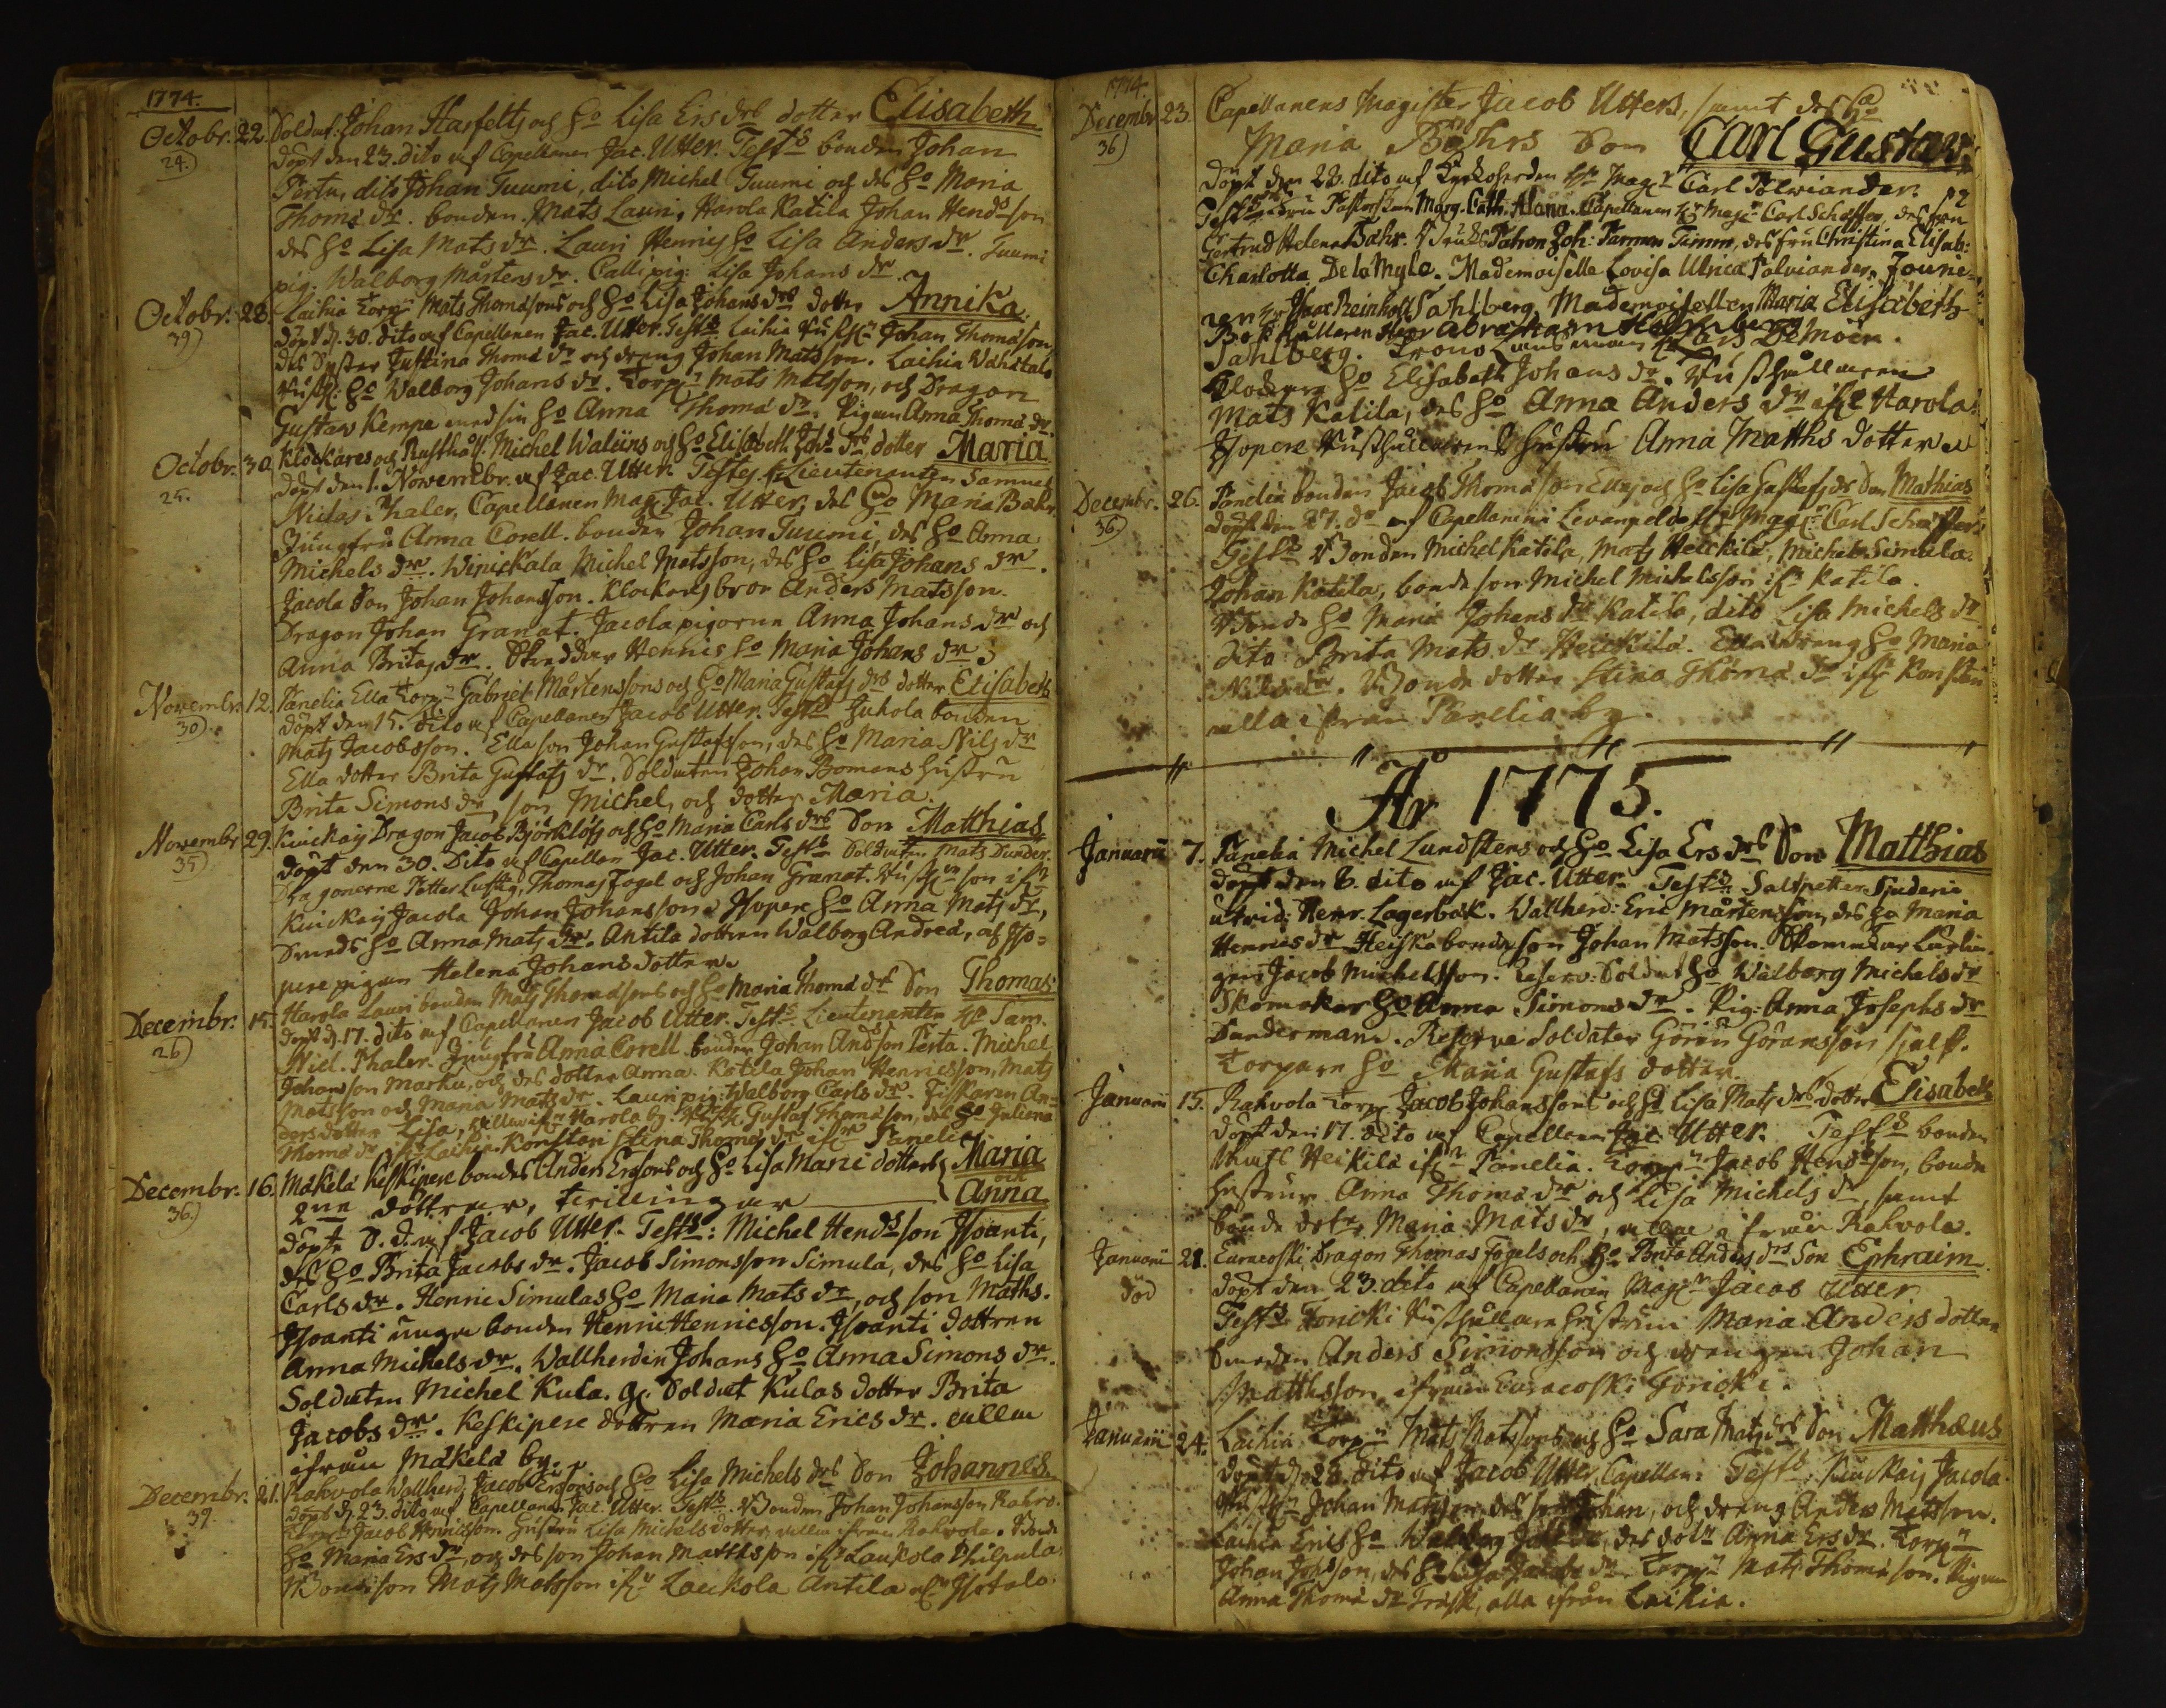 1774.
Octobr. 22. Soldat: Johan Harfelts och Ho Lisa Ers drs dotter Elisabeth
24.) döpt den 23. dito af Capellanen Jac. Utter. Tests bonden Johan
Pertu, dito Johan Tuumi, dito Michel Tuumi och des Ho Maria
Thoma dr. bonden Mats Lauri, Harola Katila Johan Hendsson
des Ho Lisa Mats dr. Lauri Henrics Ho Lisa Anders dr. Tuumi
pig. Walborg Mårtens dr. Calli pig: Lisa Johans dr.
Octobr. 28. Laihia Torp: Mats Thomasons och Ho Lisa Johans drs dotter Annika
39) döpt d. 30. dito af Capellanen Jac. Utter. Tests Laihia Johan Thomasson
des Syster Justina Thoma dr och dreng Johan Matsson. Laihia
Ho Walborg Johans dr. Torp: Mats Matsson, och Dragon
Gustav Kempe med sin Ho Anna Thoma dr. Pigan Anna Thoma dr.
Octobr. 30. Klockares och Rusthåll: Michel Waliins och Ho Elisabeth Joh: drs dotter Maria
25. döpt den 1. Novembr. af Jac. Utter. Testes Lieutenanten Samuel
Niclas Thaler, Capellanen Mag: Jac. Utter, des Ho Maria Bahr
Jungfru Anna Corell. bonden Johan Tuumi, des Ho Anna
Michels dr. Winickala Michel Matsson, des Ho Lisa Johans dr.
Jacola Son Johan Johansson. Klockars bror Anders Matsson.
Dragon Johan Granat. Jacola pigorna Anna Johans dr och
Anna Brita dr. Skreddar Hennis Ho Maria Johans dr
Novembr. 12. Panelia Ella Torp: Gabriel Mårtenssons och Ho Maria Gustafs drs dotter Elisabeth
30). döpt den 15. dito af Capellanen Jacob Utter. Tests Juhola bonden
Mats Jacobsson. Ella son Johan Gustafsson, des Ho Maria Nils dr
Ella dotter Brita Gustafs dr. Soldaten Johan Bomans hustru
Brita Simons dr, son Michel, och dotter Maria.
Novembr. 29. Kiukais Dragon Jacob Björklöfs och Ho Maria Carls drs Son Matthias
35) döpt den 30. Dito af Capellan Jac. Utter. Tests Soldaten Mats Dunder.
Dragonerne Petter Lustig, Thomas Fogel och Johan Granat. son
Kiukais Jacola Johan Johansson. Isopere Ho Anna Mats dr,
Smeds Ho Anna Mats dr. Antila dottren Walborg Andrea, och Iso=
pere pigan Helena Johans dotter.
Decembr. 15. Harola Lauri bonden Mats Thomasons och Ho Maria Thoma drs Son Thomas
26) döpt d. 17. dito af Capellanen Jacob Utter. Tests Lieutenanten Hr Sam.
Nicl. Thaler. Jungfru Anna Corell. bonden Johan Andsson Perta. Michel
Johansson Marku, och des dotter Anna. Katila Johan Henricsson, Mats
Matsson och Maria Mats dr. Lauri pig: Walborg Carls dr. Fiskaren An=
ders dotter Lisa, Harola by. Gustaf Thomasson, des Ho Juliana
Thoma dr Laihia. Konstari Stina Thomas dr ifr. Panelia
Decembr. 16. Makela Keskipere bondes Anders Ersons och Ho Lisa Marci dotters Maria
och
36.) 2ne döttrar, tvillingar Anna
döpte d. d. af Jacob Utter. Tests: Michel Hendsson Isoanti,
des Ho Brita Jacobs dr. Jacob Simonsson Simula, des Ho Lisa
Carls dr. Henric Simulas Ho Maria Mats dr, och son Maths.
Isoanti unga bonden Henric Henricsson. Isoanti dottren
Anna Michels dr. Wallherden Johans Ho Anna Simons dr.
Soldaten Michel Kula. g. Soldat Kulas dotter Brita
Jacobs dr. Keskipere dottren Maria Erics dr. alla
ifrån Makela by.
Decembr. 21. Rahvola Wallherd: Jacob Ersons och Ho Lisa Michels drs Son Johannes
39. döpt d. 23. dito af Capellanen Jac. Utter. Tests. Bonden Johan Johansson Rahvo.
Jacob Henricsson. hustru Lisa Michels dotter alla ifrån Rahvola. Bonde
Ho Maria Ers dr, och des son Johan Mathsson Laukola Philpula
Bondeson Mats Matsson ifr Laukola Antila Isotalo.
1774.
Decembr 23. Capellanens Magister Jacob Utters, samt des Ho
36) Maria Bährs Son Carl Gustav.
döpt den 28. dito af Kyrkoherden Hr Magr Carl Polviander.
Tests Fru Pastorskan Marg. Cath. Alana. Capellanen Hr Magr Carl Schæffer, des fru
Gertrud Helena Bahr. Patron Joh: Tamm, des fru Christina Elisab:
Charlotta De la Myle. Mademoiselle Lovisa Ulrica Polviander. Jounie=
ren Hr Isaac Reinholt Sahlberg, Mademoisellen Maria Elisabeth
Bokhållaren Herr Abraham Holmberg
Sahlberg. Krono Länsman Hr Lars De Moen.
Klockare Ho Elisabeth Johans dr. Rusthållaren
Mats Katila, des Ho Anna Anders dr ifr Harola.
Isopere Rusthållarens hustru Anna Matths dotter
Decembr. 26. Panelia bonden Jacob Thomasson Ellas och Ho Lisa Gustafs drs Son Mathias
36) döpt den 27. do af Capellanen i Levanpeldo Hr Magr: Carl Schæffer.
Tests Bonden Michel Katila, Mats Heickila, Michel Simula.
Johan Katila, bonde son Michel Michelsson ifr Katila.
Bonde Ho Maria Johans dr Katila, dito Lisa Michels dr
dito Brita Mats dr Heickila. Ella Dreng Ho Maria
Nils dr. Bonde dotter Stina Thoma dr ifr Konstari
alla ifrån Panelia by.
År 1775.
Januarii 7. Panelia Michel Lundstens och Ho Lisa Ers drs Son Matthias
döpt den 8. dito af Jac. Utter. Tests Saltpetter Sjuderie
Henr. Lagerbäk. Wallherd: Eric Mårtensson, des Ho Maria
Henrics dr Heiska bonde son Johan Matsson. Skomakar Lärlin=
gen Jacob Michelsson. Reserv: Soldat Ho Walborg Michels dr
Skomakar Ho Anna Simons dr. Pig: Anna Josephs dr
Dunderman. Reserve Soldaten Görän Göransson sjelf.
Torpare Ho Maria Gustafs dotter.
Januarii 15. Rahvola Torp: Jacob Johanssons och Ho Lisa Mats drs dotter Elisabeth
döpt den 17. dito af Capellanen Jac. Utter. Tests bonden
Mats Heikilä ifr Panelia. Torp: Jacob Hendsson, bonde
hustrur Anna Thoma dr och Lisa Michels dr, samt
bonde dotr Maria Mats dr, alla ifrån Rahvola.
Januarii 21. Euracoski Dragon Thomas Fogels och Ho Brita Anders drs Son Ephraim
död döpt den 23. dito af Capellanen Magr Jacob Utter
Tests Koricki Rusthållare hustrun Maria Anders dotter
Smeden Anders Simonsson och drengen Johan
Matthsson, ifrån Euracoski
Januarii 24. Laihia Torp: Mats Matssons och Ho Sara Mats drs Son Matthæus
döpt d. 26. dito af Jacob Utter, Capellan: Tests. Kiukais Jacola
Johan Matsson, des son Johan, och dreng Anders Matsson.
Laihia Erics Ho Walborg dr, des dotr Anna Ers dr. Torp:
Johan Johsson, des Ho Lisa Jacobs dr. Torp: Mats Thomasson. Pigan
Anna Thoma dr Träsk, alla ifrån Laihia.